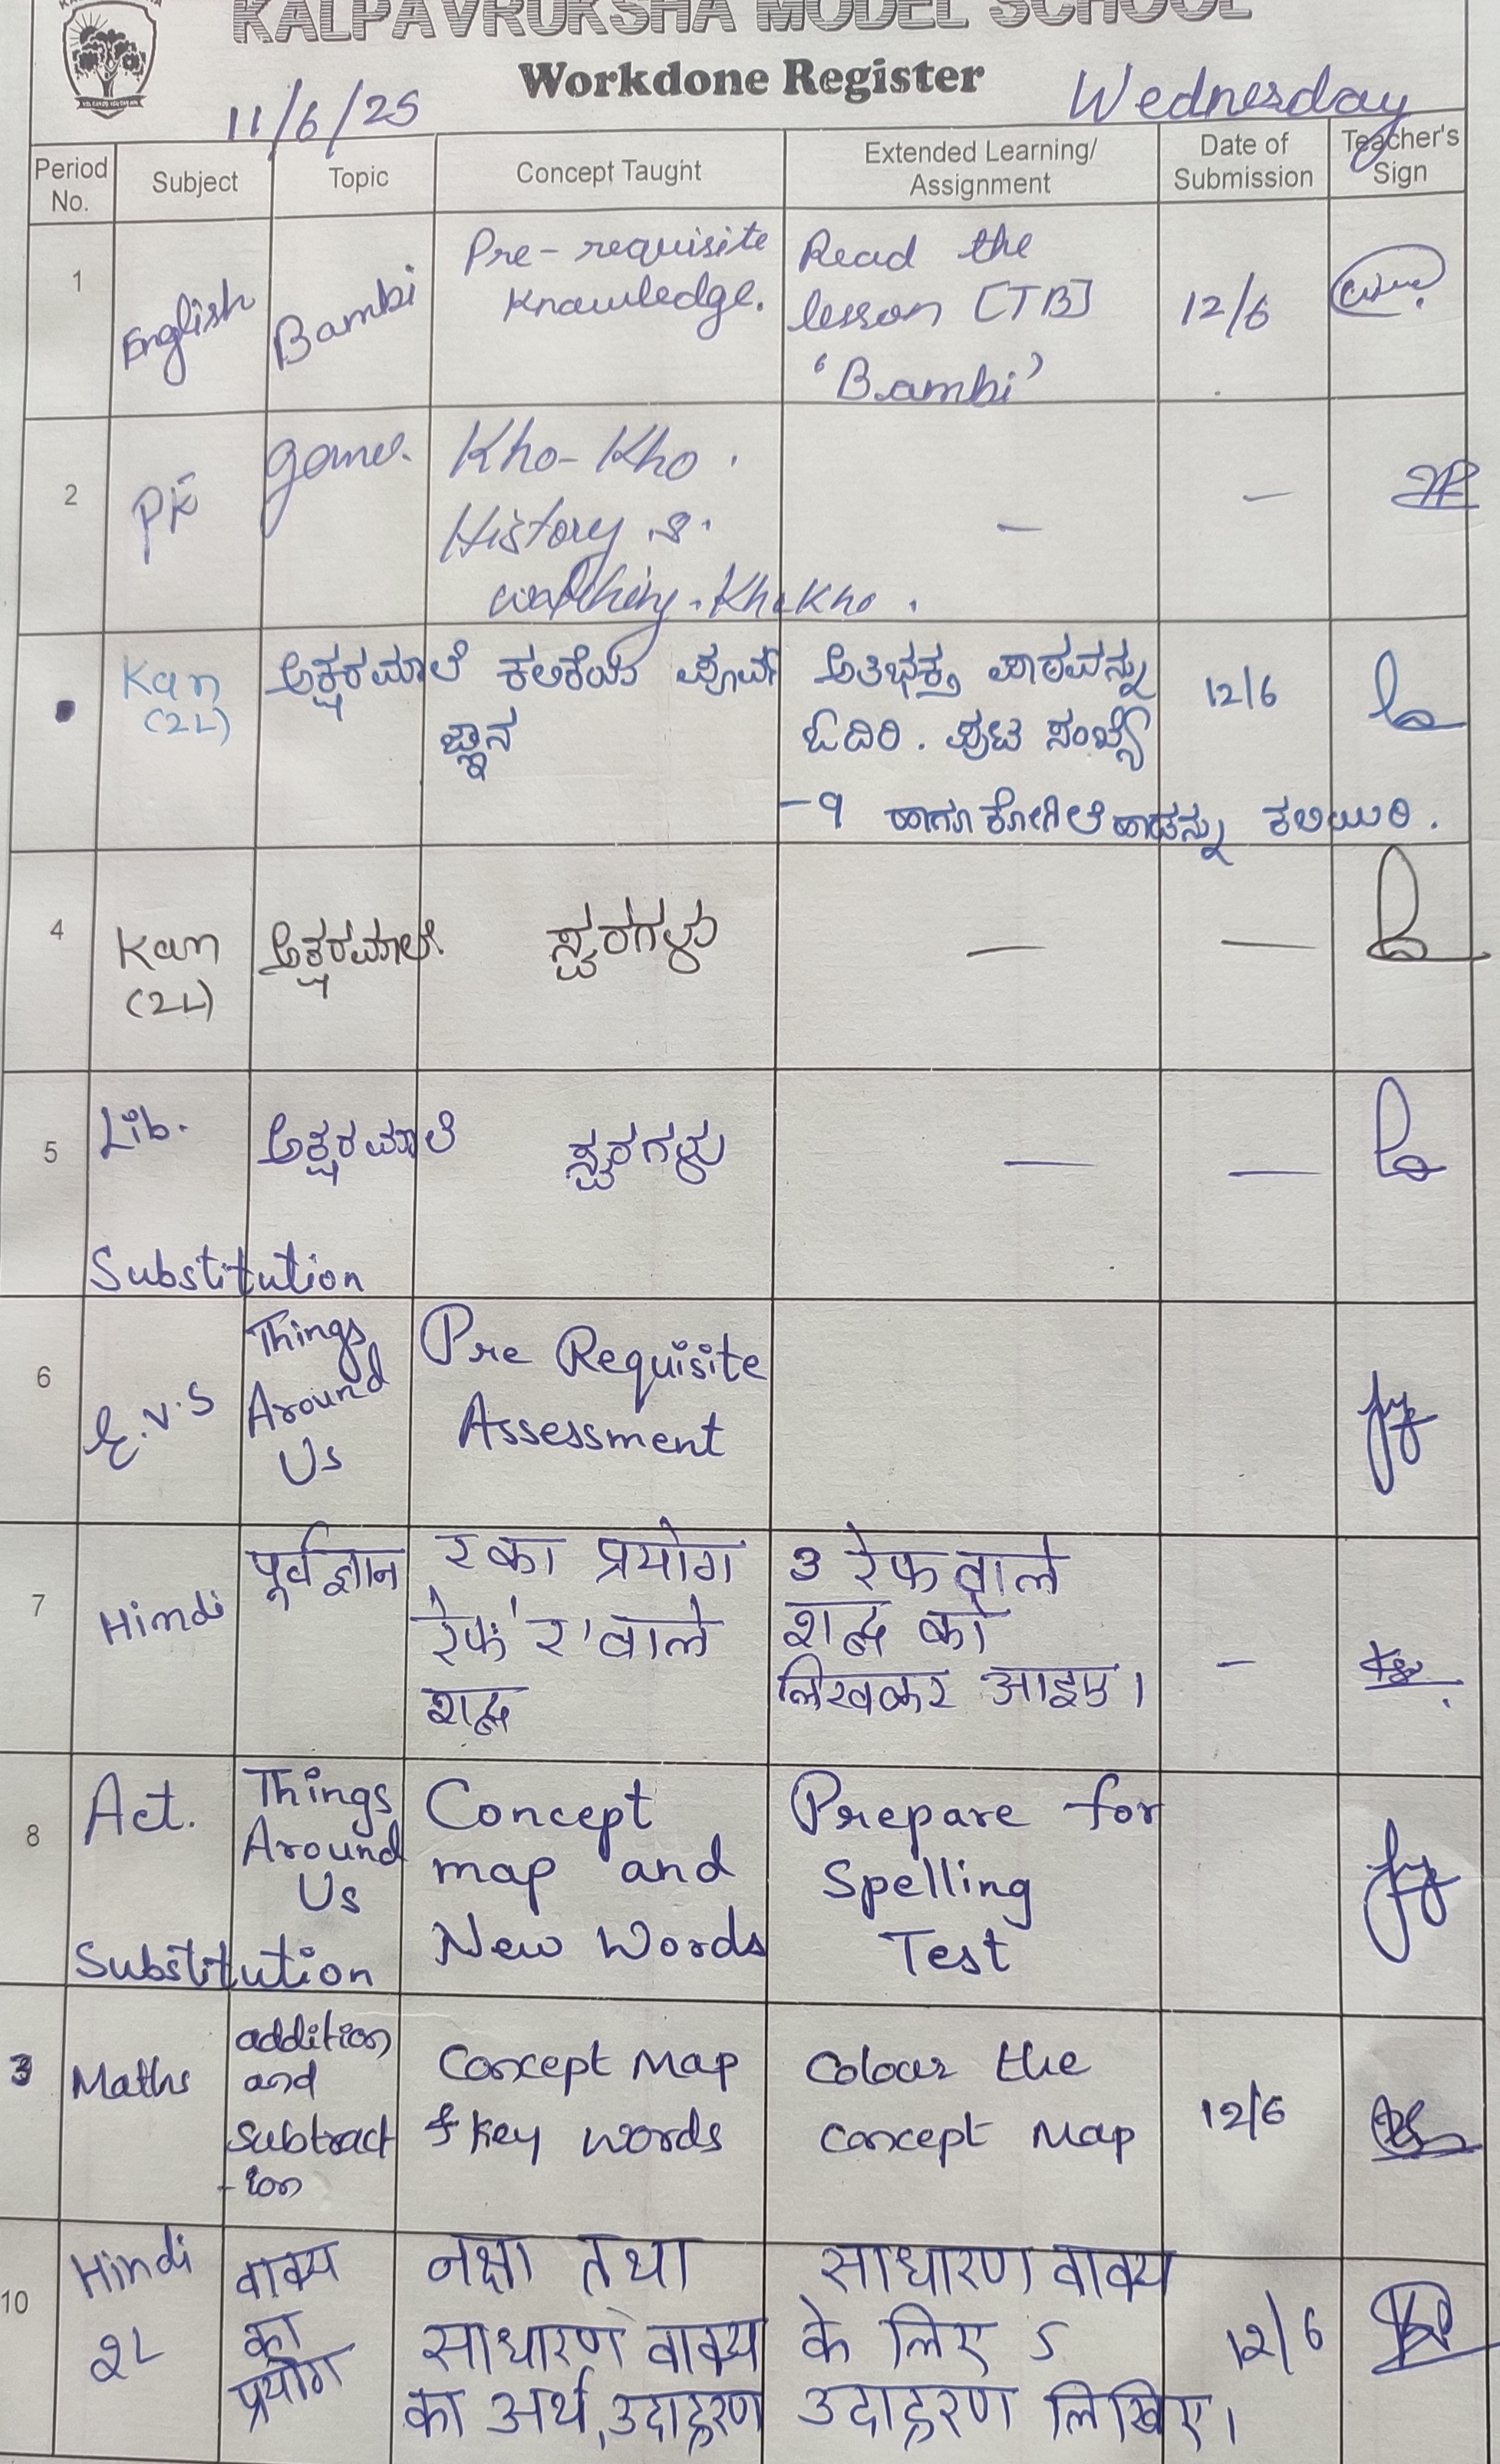 KALPAVRUKSHA MODEL SCHOOL
Workdone Register
11/6/25
Wednesday
Period No.
Subject
Topic
Concept Taught
Extended Learning/
Assignment
Date of
Submission
Teacher's
Sign
1
English
Bambi
Pre-requisite
Knowledge.
Read the
lesson [TB]
'Bambi'
12/6
2
PE
games.
Kho-Kho.
History
Kho Kho.
—
—
Kan
(2L)
ಅಕ್ಷರಮಾಲೆ
ಕಲಿಕೆಯ ಪೂರ್ವ
ಜ್ಞಾನ
ಪಾಠವನ್ನು
ಓದಿರಿ. ಪುಟ ಸಂಖ್ಯೆ
-9 ಹಾಗೂ ಕೋಗಿಲೆ ಹಾಡನ್ನು ಕಲಿಯಿರಿ.
12/6
4
Kan
(2L)
ಅಕ್ಷರಮಾಲೆ
ಸ್ವರಗಳು
—
—
5
Lib.
Substitution
ಅಕ್ಷರಮಾಲೆ
ಸ್ವರಗಳು
—
—
6
E.V.S
Things
Around
Us
Pre Requisite
Assessment
7
Hindi
पूर्वज्ञान
र का प्रयोग
रेफ 'र' वाले
शब्द
3 रेफ वाले
शब्द को
लिखकर आइए।
-
8
Act.
Substitution
Things
Around
Us
Concept
map and
New Words
Prepare for
Spelling
Test
3
Maths
addition
and
subtract
-ion
Concept Map
& Key words
Colour the
concept Map
12/6
10
Hindi
2L
वाक्य
का
प्रयोग
नक्षा तथा
साधारण वाक्य
का अर्थ, उदाहरण
साधारण वाक्य
के लिए 5
उदाहरण लिखिए।
12/6